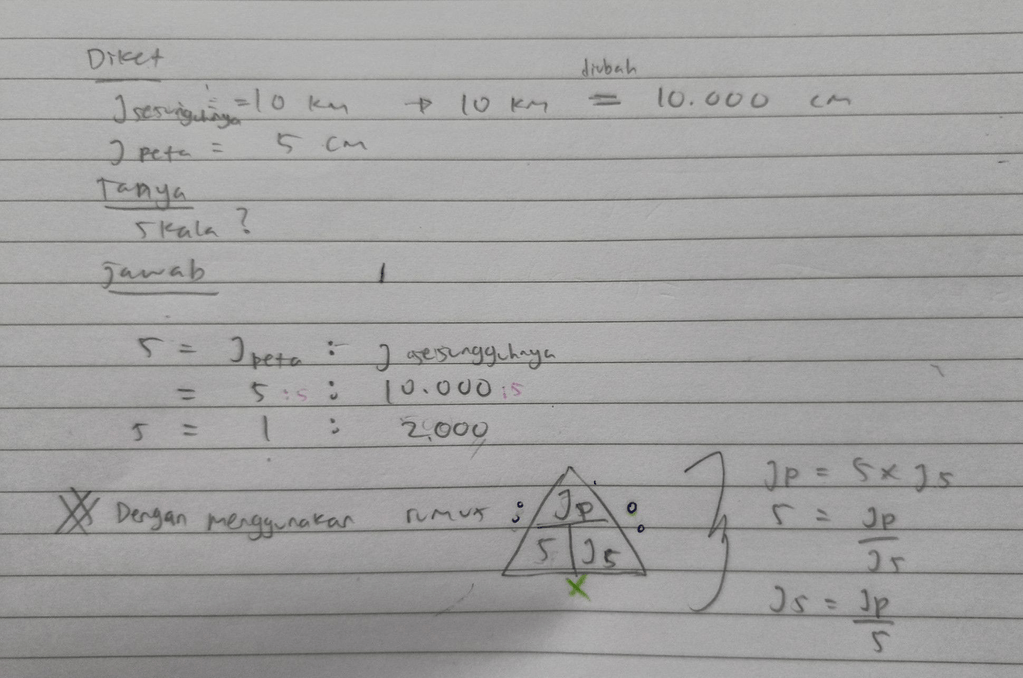 Diket
diubah
J sesungguhnya = 10 km → 10 km = 10.000 cm
J peta = 5 cm
Tanya
Skala ?
Jawab
S = J peta : J sesungguhnya
= 5 :5 : 10.000 :5
S = 1 : 2.000
Dengan menggunakan rumus : Jp :
S Js
x
Jp = S x Js
S = Jp
Js
Js = Jp
S